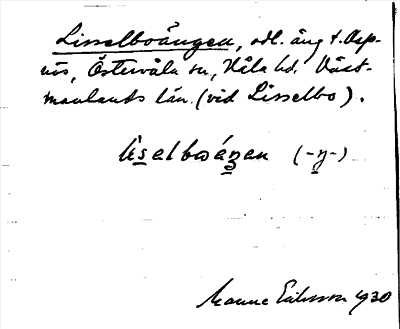 Lisselboängen, odl. äng t. Asp-
näs, Östervåla sn, Våla hd. Väst-
manlands län. (vid Lisselbo).
lìselboáŋen (-ŋ-)
Manne Eriksson 1930